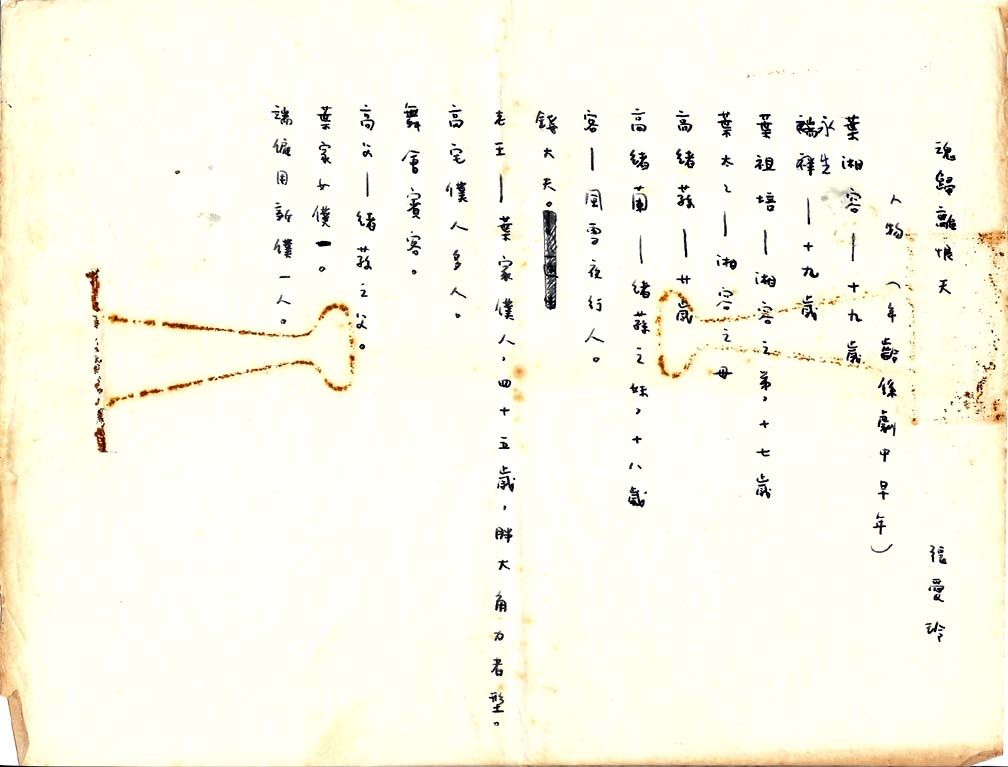 魂歸離恨天 張愛玲
人物 (年齡係劇中早年)
葉湘容——十九歲
永生
端祥——十九歲
葉祖培——湘容之弟，十七歲
葉太太——湘容之母
高緒蓀——廿歲
高緒蘭——緒蓀之妹，十八歲
客——風雪夜行人。
錢大夫。
老王——葉家僕人，四十五歲，胖大角力者型。
高宅僕人多人。
舞會賓客。
高父——緒蓀之父。
葉家女僕一。
端僱用新僕一人。